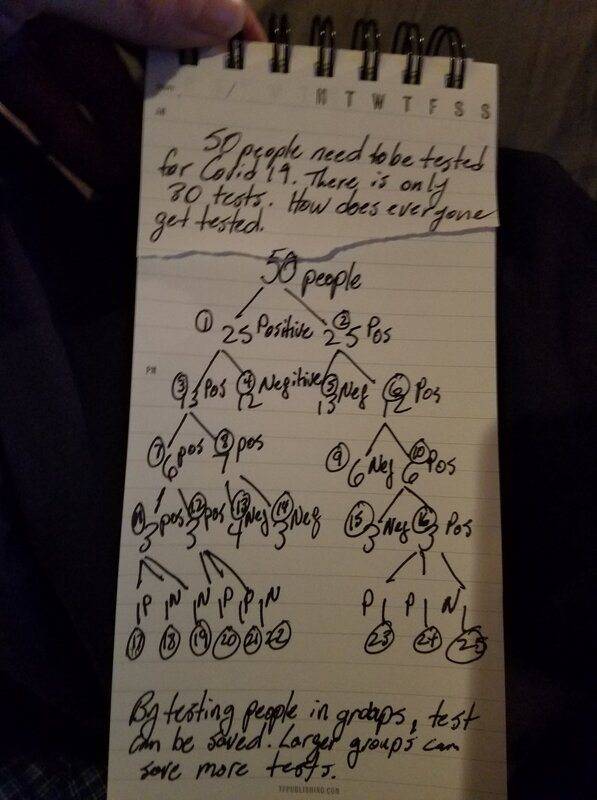 M T W T F S S
AM
50 people need to be tested
for Covid 19. There is only
30 tests. How does everyone
get tested.
50 people
① 25 Positive ② 25 Pos
PM
③ 13 Pos ④ 12 Negitive ⑤ 13 Neg ⑥ 12 Pos
⑦ 6 pos ⑧ 7 pos ⑨ 6 Neg ⑩ 6 Pos
⑪ 3 pos ⑫ 3 pos ⑬ 4 Neg ⑭ 3 Neg ⑮ 3 Neg ⑯ 3 Pos
P N N P P N P P N
⑰ ⑱ ⑲ ⑳ ㉑ ㉒ ㉓ ㉔ ㉕
By testing people in groups, test
can be saved. Larger groups can
save more tests.
TFPUBLISHING.COM